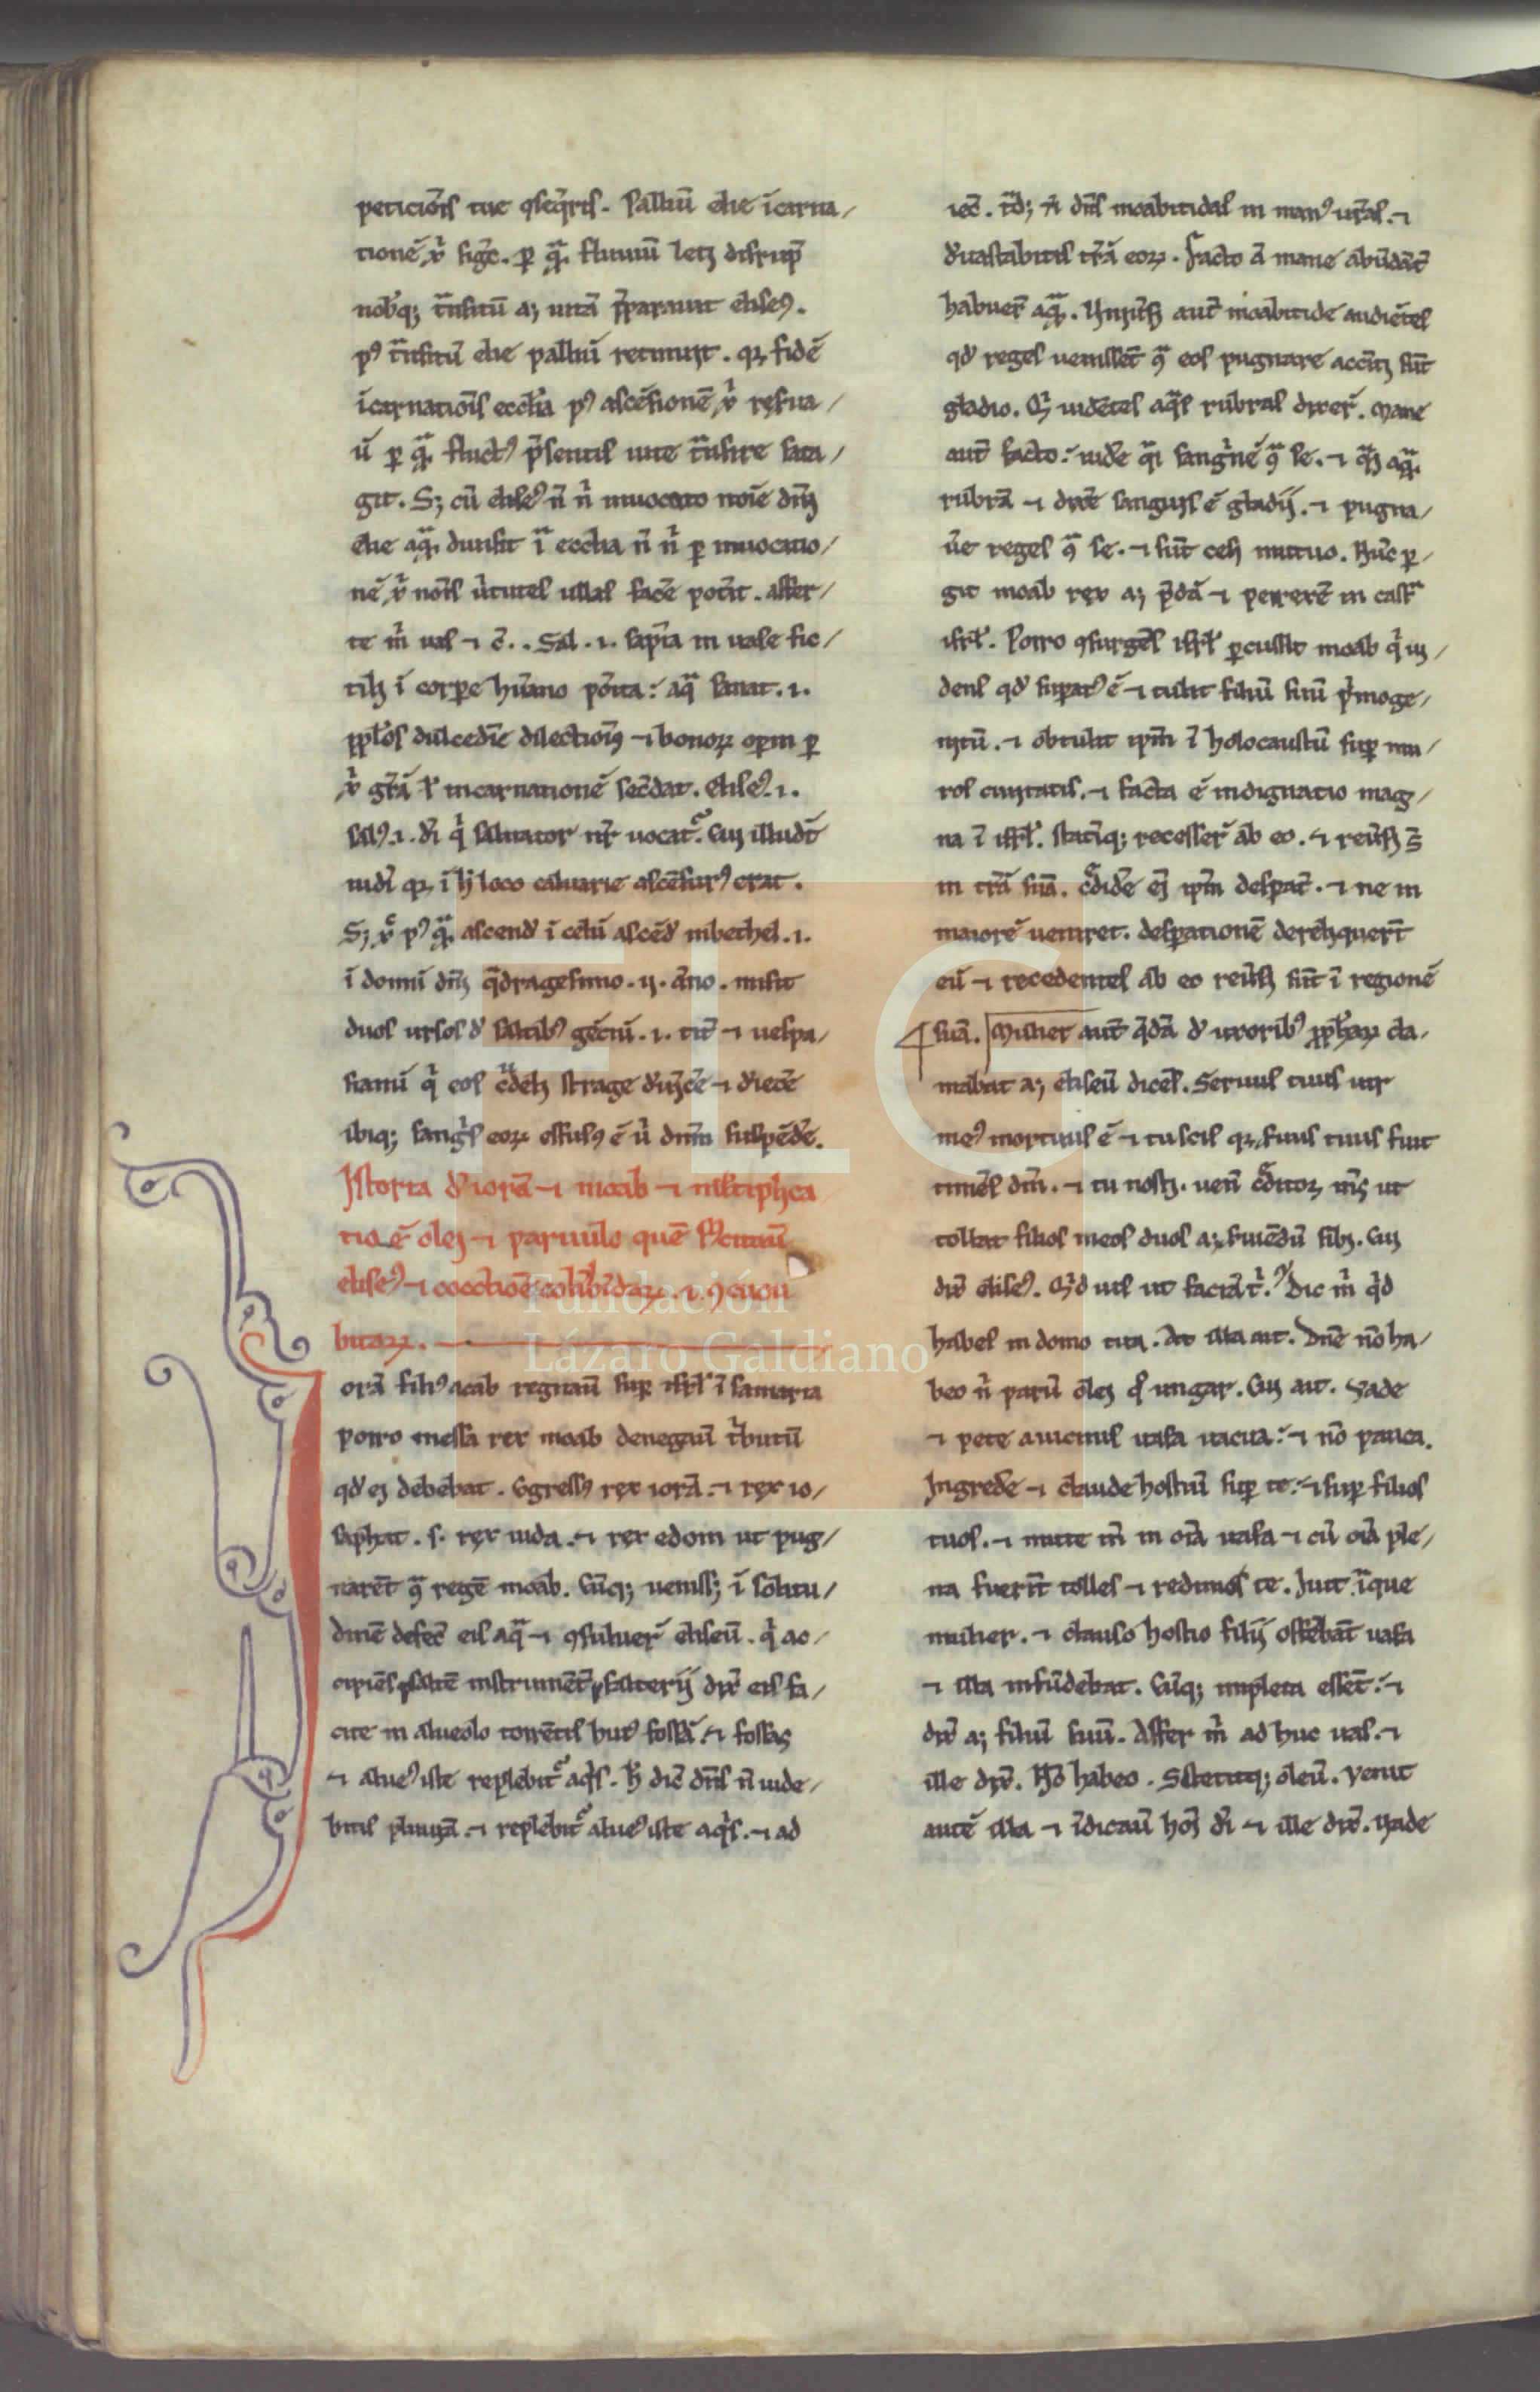 peticiōis tue ꝯseq̄ris. Palliū elie īcarna/
tionē xͥ figͣt. ꝑ qͣ. fluuiū letꝫ disrūp̄
nob̄qꝫ tͣnsitū aꝫ uitā p̄parauit eliseꝰ.
pꝰ tͣnsitū elie palliū retinuit. qꝫ fidē
īcarnatiōis eccl̄ia pꝰ ascēsionē xͥ reſua/
ū ꝑ qͣ. fluctꝰ p̄sentis uite tͣnsire sata/
git. Sꝫ cū eliseꝰ n̄ nͥ inuocato noīe dn̄ꝫ
elie aqͣ. diuisit īͣ eccl̄ia n̄ nͥ ꝑ inuocatio/
nē xͥ noīs ūtutes ullas facē potīt. affer/
te mͥ uas ⁊ c̄. Sal .i. sapīa in uase fic/
tilꝫ ī corꝑe hūano poīta: aqͣ sanat .i.
pp̄los dulcedīe dilectiōis ⁊ bonoꝝ oꝑm ꝑ
xͥ gr̄ā ꝉ incarnationē fec̄dat. Eliseꝰ .i.
salꝰ .i. dī qͥ saluator nr̄ uocat᷑. Cuꝫ illudt̄
iudī qꝫ ī hͥ loco caluarie ascēsurꝰ erat.
Sꝫ xͨ pꝰ qͣ. ascendͥ ī celū ascēdͥ in bethel .i.
ī domū dn̄ꝫ qͣdragesimo .ij. āno. misit
duos ursos dͥ saltibꝰ gēciū .i. titū ⁊ uespa/
sianū qͥ eos cͣdelꝫ strage dͥuicē ⁊ dͥiecē
ibiqꝫ sanguͥs eoꝝ effusꝰ ē uͥ dn̄m suspēdē.
Istoria dͥ iorā ⁊ moab ⁊ mltiplica
tio ē olei ⁊ paruulo quē suscitauī
eliseꝰ ⁊ coctiōe colibͥdaꝝ .i. ꝯcuou
bitaꝝ.
orā filiꝰ acab regnauī suꝑ isrl̄ ī samaria
porro messa rex moab denegauī tͥbutū
qd̄ ei debebat. Egressꝰ rex iorā ⁊ rex io/
saphat .s. rex iuda. ⁊ rex edom ut pug/
narēt ꝯͣ regē moab. Cūqꝫ uenissꝫ ī solitu/
dinē defec̄ eis aqͣ ⁊ ꝯsuluer̄ eliseū. qͥ ac/
cipiēs psaltē instrumēt̄ psalterij dix̄ eis fa/
cite in alueolo torrētis hutꝰ fossā ⁊ fossas
⁊ alueꝰ iste replebit᷑ aqͥs. h̄ dic̄ dn̄s n̄ uide/
bitis pluuiā ⁊ replebit᷑ alueꝰ iste aqͥs. ⁊ ad
iec̄. tͣdꝫ n̄ dn̄s moabitidas in manꝰ ur̄as. ⁊
dͥuastabitis tr̄ā eoꝝ. Facto ā mane abūdāt̄
habuer̄ aqͣ. Uniūsi aut̄ moabitide audiētes
qd̄ reges uenissēt ꝯͣ eos pugnare acciti sūt
gladio. Qͥ uidētes aqͣs rubras dixer̄. Mane
aut̄ facto: uidē qͣi sanguͥnē ꝯͣ se. ⁊ qͣsi aqͣ.
rubrā ⁊ dixē sanguis ē gladij. ⁊ pugna/
ūe reges ꝯͣ se. ⁊ sūt cesi mutuo. Nūc ꝑ/
git moab rex aꝫ p̄dā ⁊ perrexē in castͣ
isrl̄. Porro ꝯsurgēs isrl̄ ꝑcussit moab qͥ ui/
dens qd̄ suꝑatꝰ ē ⁊ tulit filiū suū pͥmoge/
nitū. ⁊ obtulit ip̄m ī holocaustū suꝑ mu/
ros ciuitatis. ⁊ facta ē indignatio mag/
na ī isrl̄. statīqꝫ recesser̄ ab eo. ⁊ reūsi s̄
in tr̄ā suā. cͣdidē ei ip̄m desꝑat̄. ⁊ ne in
maiorē ueniret. desꝑationē derelīquer̄t
eū ⁊ recedentes ab eo reūsi sūt ī regionē
suā. Mulier aut̄ qͣdā dͥ uxoribꝰ ꝓph̄aꝝ cla/
mabat aꝫ eliseū dicēs. Seruus tuus uir
meꝰ mortuus ē ⁊ tu scis qꝫ seruus tuus fuit
timēs dm̄. ⁊ tu nosti. uen̄ cͣditoꝝ mꝰ ut
tollat filios meos duos aꝫ suiēdū sibꝫ. Cui
dix̄ eliseꝰ. Qͥd uis ut faciā tͥ. Dic mͥ qͥd
habes in domo tua. At illa ait. Dn̄e nō ha/
beo nͥ parū olei qͦ ungar. Cui ait. Vade
⁊ pete a uicinis uasa uacua: ⁊ nō pauca.
Ingredē ⁊ claude hostiū suꝑ te: ⁊ suꝑ filios
tuos. ⁊ mitte in̄ in oīa uasa ⁊ cū oīa ple/
na fuerīt tolles ⁊ redimes te. Iuit īͣque
mulier. ⁊ clauso hostio filij offerebāt uasa
⁊ illa infūdebat. Cūqꝫ impleta essēt: ⁊
dix̄ aꝫ filiū suū. Affer mͥ ad huc uas. ⁊
ille dix̄. Nō habeo. Stetitqꝫ oleū. Venit
autē illa ⁊ īdicauī hoī dī ⁊ ille dix̄. Uade
FLG
Fundación
Lázaro Galdiano